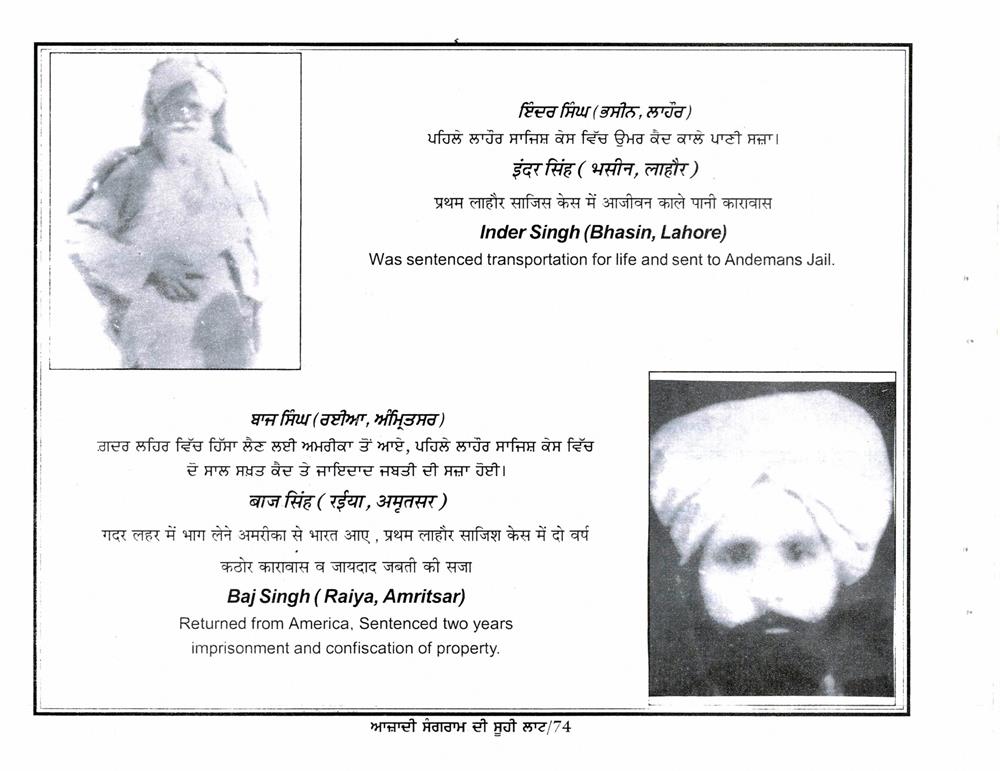 ਇੰਦਰ ਸਿੰਘ (ਭਸੀਨ, ਲਾਹੌਰ)
ਪਹਿਲੇ ਲਾਹੌਰ ਸਾਜਿਸ਼ ਕੇਸ ਵਿੱਚ ਉਮਰ ਕੈਦ ਕਾਲੇ ਪਾਣੀ ਸਜ਼ਾ।
इंदर सिंह ( भसीन, लाहौर )
प्रथम लाहौर साजिस केस में आजीवन काले पानी कारावास
Inder Singh (Bhasin, Lahore)
Was sentenced transportation for life and sent to Andemans Jail.
ਬਾਜ ਸਿੰਘ (ਰਈਆ, ਅੰਮ੍ਰਿਤਸਰ)
ਗ਼ਦਰ ਲਹਿਰ ਵਿੱਚ ਹਿੱਸਾ ਲੈਣ ਲਈ ਅਮਰੀਕਾ ਤੋਂ ਆਏ, ਪਹਿਲੇ ਲਾਹੌਰ ਸਾਜਿਸ਼ ਕੇਸ ਵਿੱਚ
ਦੋ ਸਾਲ ਸਖ਼ਤ ਕੈਦ ਤੇ ਜਾਇਦਾਦ ਜਬਤੀ ਦੀ ਸਜ਼ਾ ਹੋਈ।
बाज सिंह ( रईया, अमृतसर )
गदर लहर में भाग लेने अमरीका से भारत आए , प्रथम लाहौर साजिश केस में दो वर्ष
कठोर कारावास व जायदाद जबती की सजा
Baj Singh ( Raiya, Amritsar)
Returned from America, Sentenced two years
imprisonment and confiscation of property.
ਆਜ਼ਾਦੀ ਸੰਗਰਾਮ ਦੀ ਸੂਹੀ ਲਾਟ/74